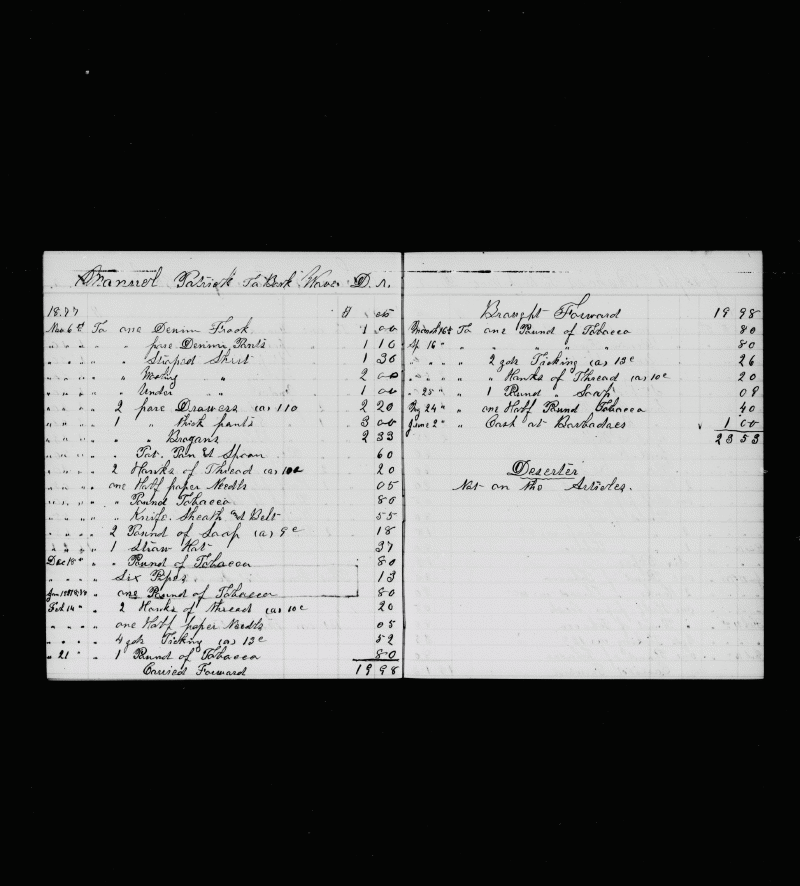 Manuel Patrick To Bark Wave D.r.
18.77 $ cts
Nov 6th To one Denim Frock 1 00
" " " " " pare Denim Pants 1 10
" " " " " Straped Shirt 1 30
" " " " " Wooling " 2 00
" " " " " Under " 1 00
" " " " 2 pare Drawers (a) 110 2 20
" " " " 1 " thick pants 3 00
" " " " " " Brogans 2 33
" " " " " Pot. Pan & Spoon 60
" " " " 2 Hanks of Thread (a) 10c 20
" " " " one Half paper Needls 05
" " " " " Pound Tobacco 80
" " " " " Knife. Sheath & Belt 55
" " " " 2 Pound of Soap (a) 9c 18
" " " " 1 Straw Hat 37
Dec 18th " " Pound of Tobacco 80
" " " " Six Pipes 13
Jan 15th 1878 " one Pound of Tobacco 80
Feb 14th " 2 Hanks of Thread (a) 10c 20
" " " " one Half paper Needls 05
" " " " 4 yds Ticking (a) 13c 52
" 21 " " 1 Pound of Tobacco 80
Carried Forward 19 98
Braught Forward 19 98
March 16th To one Pound of Tobacco 80
Ap 16 " " " " " " 80
" " " " 2 yds Ticking (a) 13c 26
" " " " " Hanks of Thread (a) 10c 20
" 25 " " 1 Pound " Soap 09
24 " " one Half Pound Tobacco 40
June 2 " " Cash at Barbadoes 1 00
23 53
Deserter
Not on the Articles.